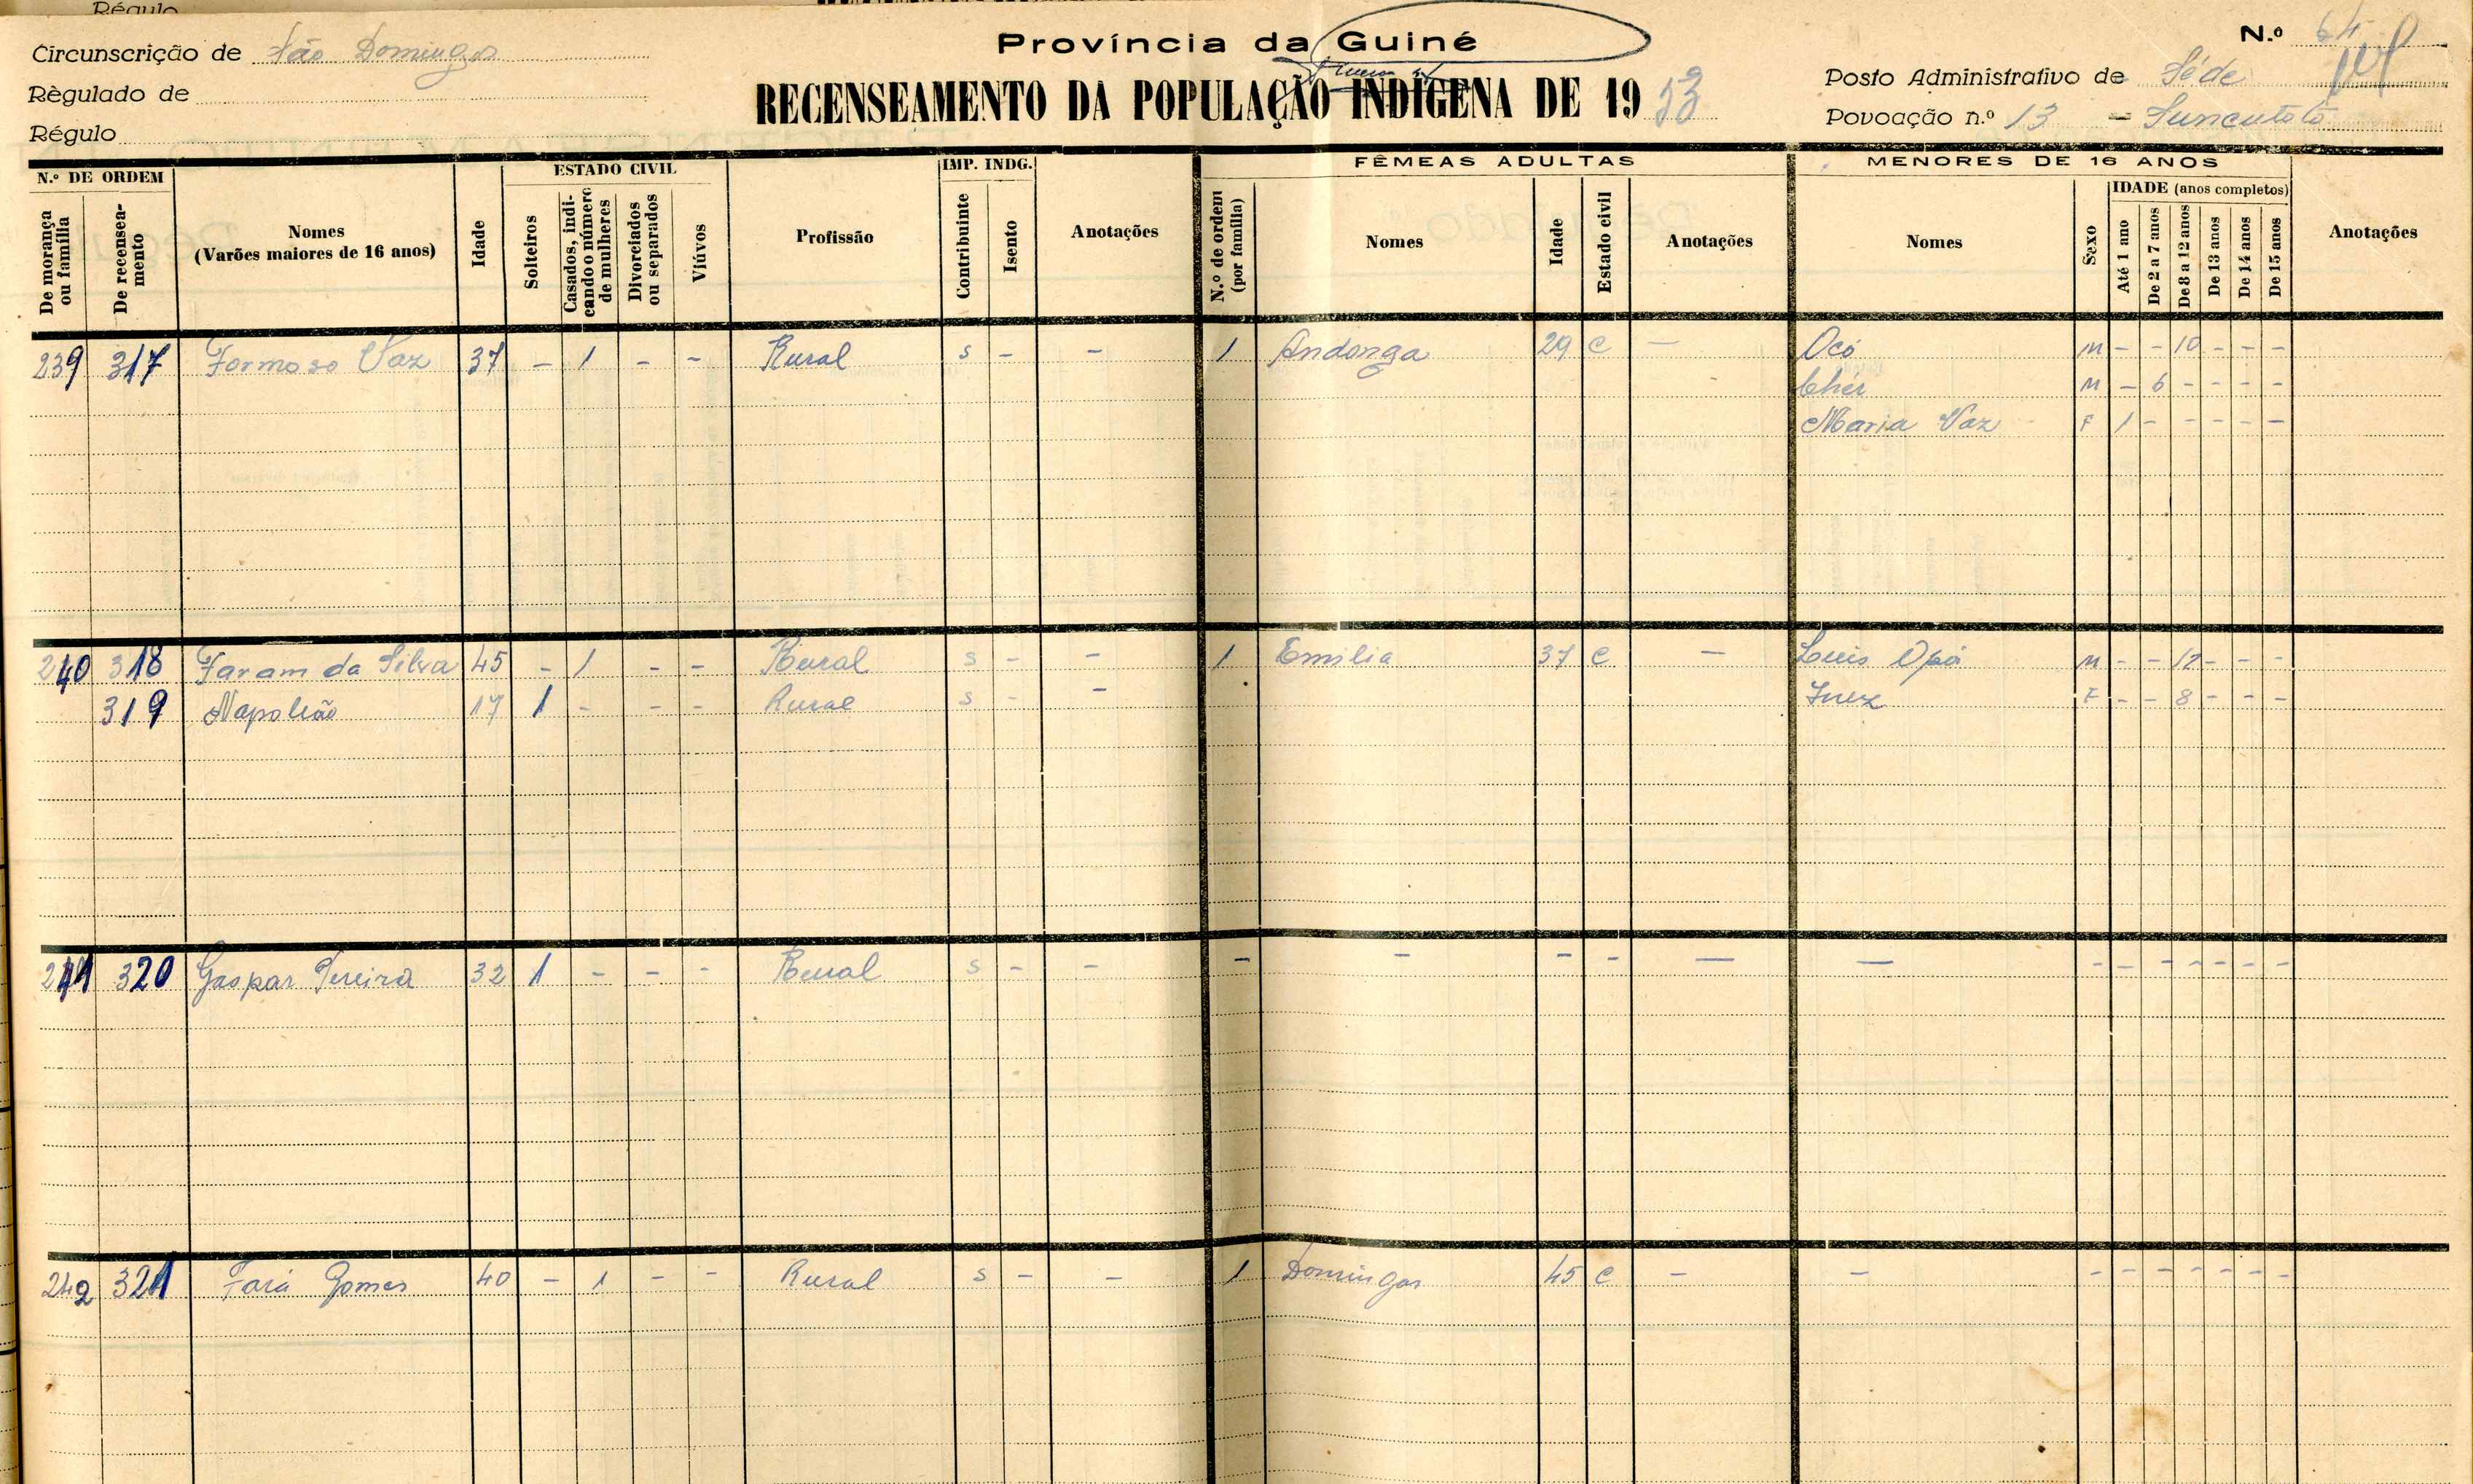 Régulo
Província da Guiné
N.º 64
Circunscrição de São Domingos
RECENSEAMENTO DA POPULAÇÃO INDÍGENA DE 1953
Posto Administrativo de Séde
Règulado de
Povoação n.º 13 - Suncutoto
Régulo
N.º DE ORDEM
De morança ou família
De recenseamento
Nomes
(Varões maiores de 16 anos)
Idade
ESTADO CIVIL
Solteiros
Casados, indicando o número de mulheres
Divorciados ou separados
Viúvos
Profissão
IMP. INDG.
Contribuinte
Isento
Anotações
FÊMEAS ADULTAS
N.º de ordem (por família)
Nomes
Idade
Estado civil
Anotações
MENORES DE 16 ANOS
Nomes
Sexo
IDADE (anos completos)
Até 1 ano
De 2 a 7 anos
De 8 a 12 anos
De 13 anos
De 14 anos
De 15 anos
Anotações
239 317 Formoso Vaz 37 - 1 - - Rural s - - 1 Andonga 29 C - Ocó M - - 10 - - -
Chér M - 6 - - - -
Maria Vaz F 1 - - - - -
240 318 Faram da Silva 45 - 1 - - Rural s - - 1 Emilia 37 C - Luis Opá M - - 12 - - -
319 Napoleão 17 1 - - - Rural s - - Inez F - - 8 - - -
241 320 Gaspar Pereira 32 1 - - - Rural s - - - - - - - - - - - - - - -
242 321 Fará Gomes 40 - 1 - - Rural s - - 1 Domingas 45 C - - - - - - - - -